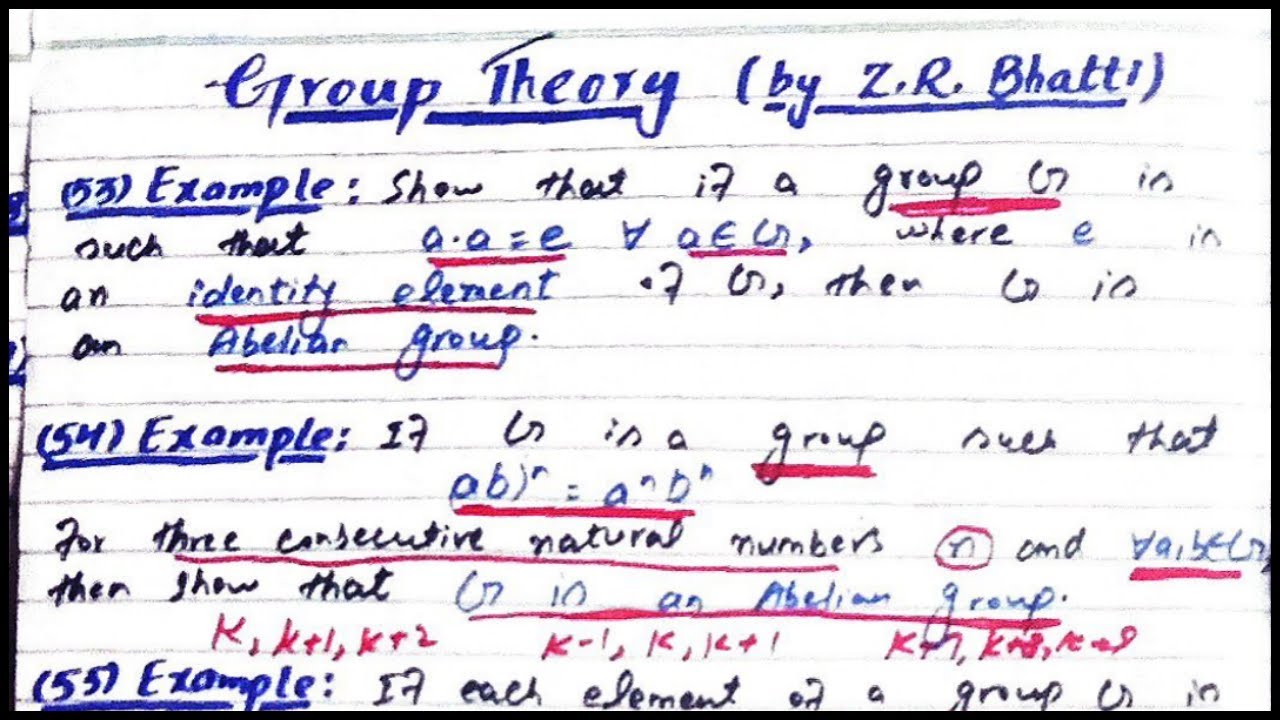 Group Theory (by Z.R. Bhatti)
(53) Example: Show that if a group G is
such that a.a = e ∀ a∈G, where e is
an identity element of G, then G is
an Abelian group.
(54) Example: If G is a group such that
(ab)ⁿ = aⁿbⁿ
For three consecutive natural numbers n and ∀a,b∈G,
then show that G is an Abelian group.
K, K+1, K+2 K-1, K, K+1 K+7, K+8, K+9
(55) Example: If each element of a group G is